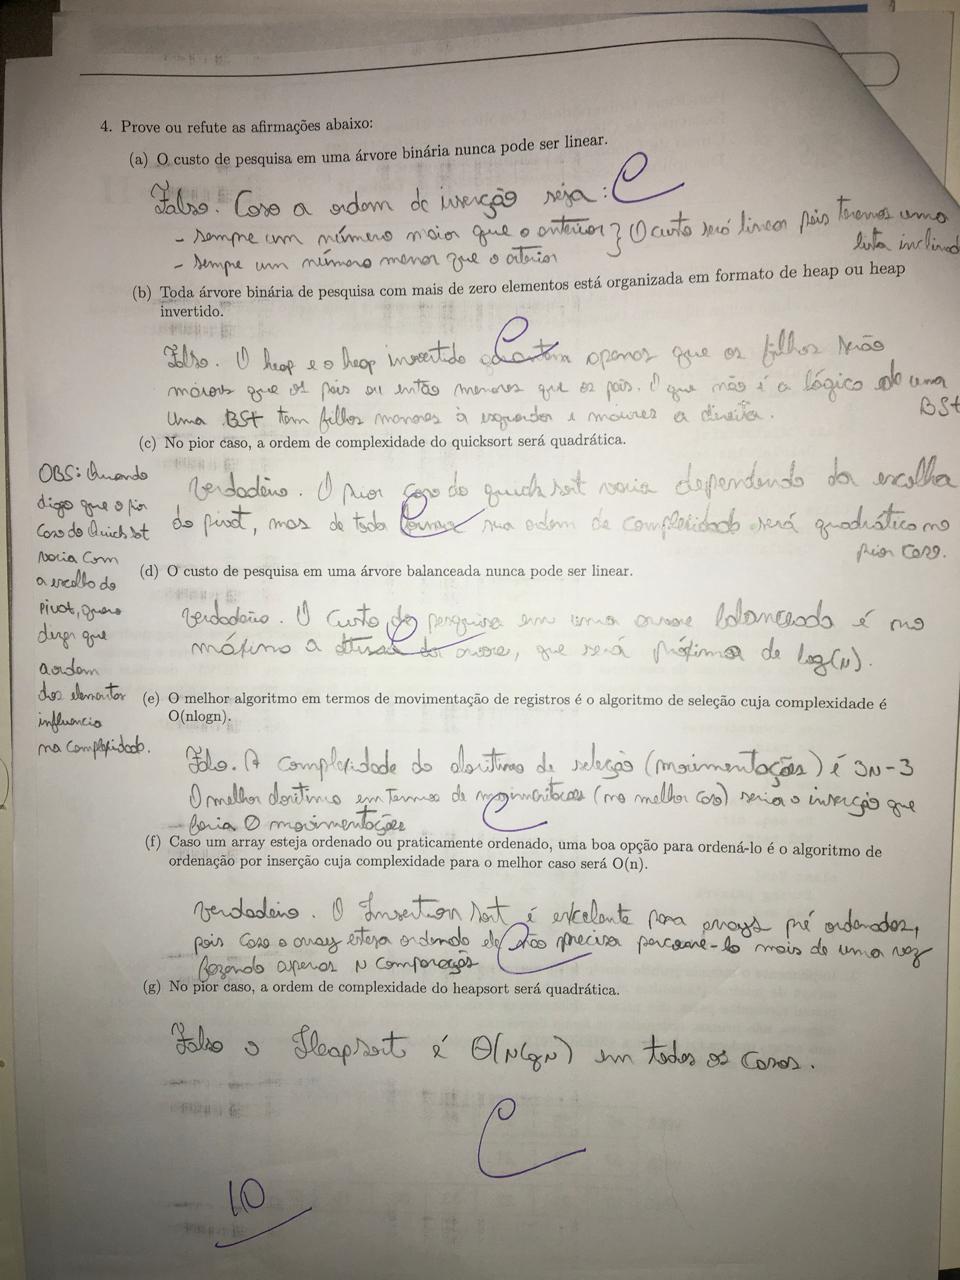 4. Prove ou refute as afirmações abaixo:
(a) O custo de pesquisa em uma árvore binária nunca pode ser linear.
Falso. Caso a ordem de inserção seja:
- sempre um número maior que o anterior } O custo será linear pois teremos uma
lista inclinada
- sempre um número menor que o anterior
(b) Toda árvore binária de pesquisa com mais de zero elementos está organizada em formato de heap ou heap
invertido.
Falso. O heap e o heap invertido garantem apenas que os filhos serão
maiores que os pais ou então menores que os pais. O que não é a lógica de uma
BST
Uma BST tem filhos menores à esquerda e maiores a direita.
(c) No pior caso, a ordem de complexidade do quicksort será quadrática.
Verdadeiro. O pior caso do quicksort varia dependendo da escolha
do pivot, mas de toda forma sua ordem de complexidade será quadrático no
pior caso.
OBS: Quando
digo que o pior
caso do Quicksort
varia com
a escolha do
pivot, quero
dizer que
a ordem
dos elementos
influencia
na complexidade.
(d) O custo de pesquisa em uma árvore balanceada nunca pode ser linear.
Verdadeiro. O custo de pesquisa em uma arvore balanceada é no
máximo a altura da arvore, que será próxima de log(N).
(e) O melhor algoritmo em termos de movimentação de registros é o algoritmo de seleção cuja complexidade é
O(nlogn).
Falso. A complexidade do algoritmo de seleção (movimentações) é 3N-3
O melhor algoritmo em termos de movimentações (no melhor caso) seria o inserção que
faria 0 movimentações
(f) Caso um array esteja ordenado ou praticamente ordenado, uma boa opção para ordená-lo é o algoritmo de
ordenação por inserção cuja complexidade para o melhor caso será O(n).
Verdadeiro. O Insertion Sort é excelente para arrays pré ordenados,
pois caso o array esteja ordenado ele não precisa percorrê-lo mais de uma vez
fazendo apenas N comparações
(g) No pior caso, a ordem de complexidade do heapsort será quadrática.
Falso o HeapSort é Θ(NlgN) em todos os casos.
C
10